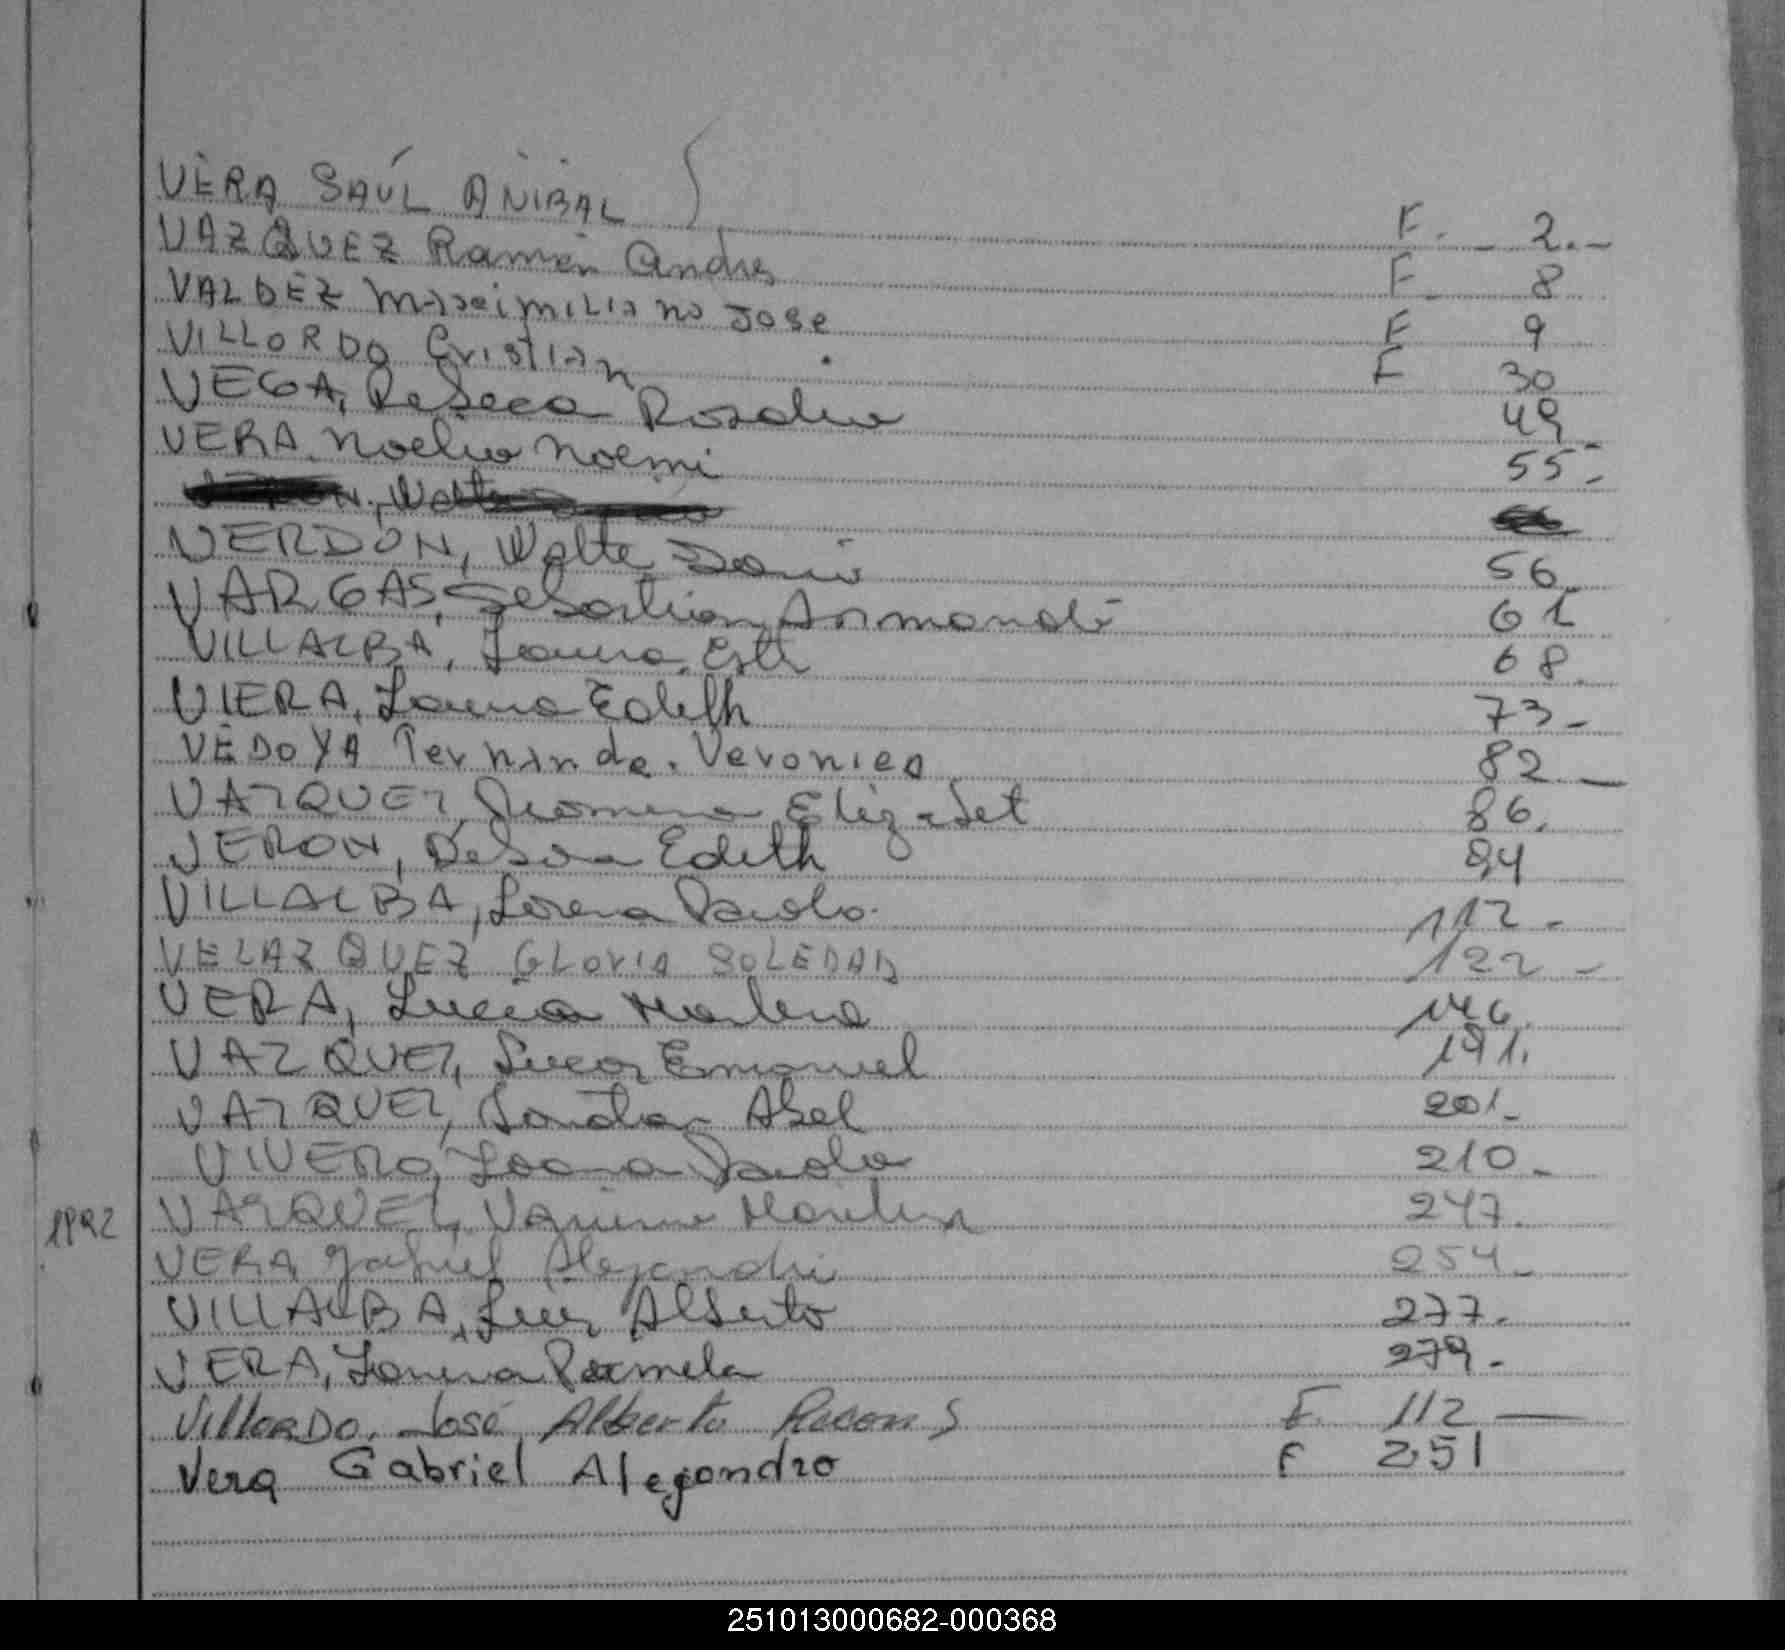 VERA SAÚL ANIBAL F. 2.-
VAZQUEZ Ramón Andres F 8
VALDEZ Maximiliano Jose F 9
VILLORDO Cristian F 30
VEGA, Rebeca Rosalia 49
VERA Noelia Noemi 55.-
VERDON, Walte Dario 56
VARGAS, Sebastian Armando 61
VILLALBA, Esth 68.
VIERA, Edith 73-
VEDOYA Fernanda. Veronica 82-
VAZQUEZ, Elizabet 86.
VERON, Debora Edith 94
VILLALBA, Lorena Paola 112-
VELAZQUEZ GLORIA SOLEDAD 122-
VERA, Lucia Marlene 146.
VAZQUEZ, Lucas Emanuel 191.
VAZQUEZ, Abel 201-
VIVERO, Paola 210-
1992 VAZQUEZ, Vanina 247.
VERA Gabriel Alejandro 254-
VILLALBA, Luis Alberto 277-
VERA, Pamela 279-
VILLORDO, José Alberto F. 112-
Vera Gabriel Alejandro F 251
251013000682-000368